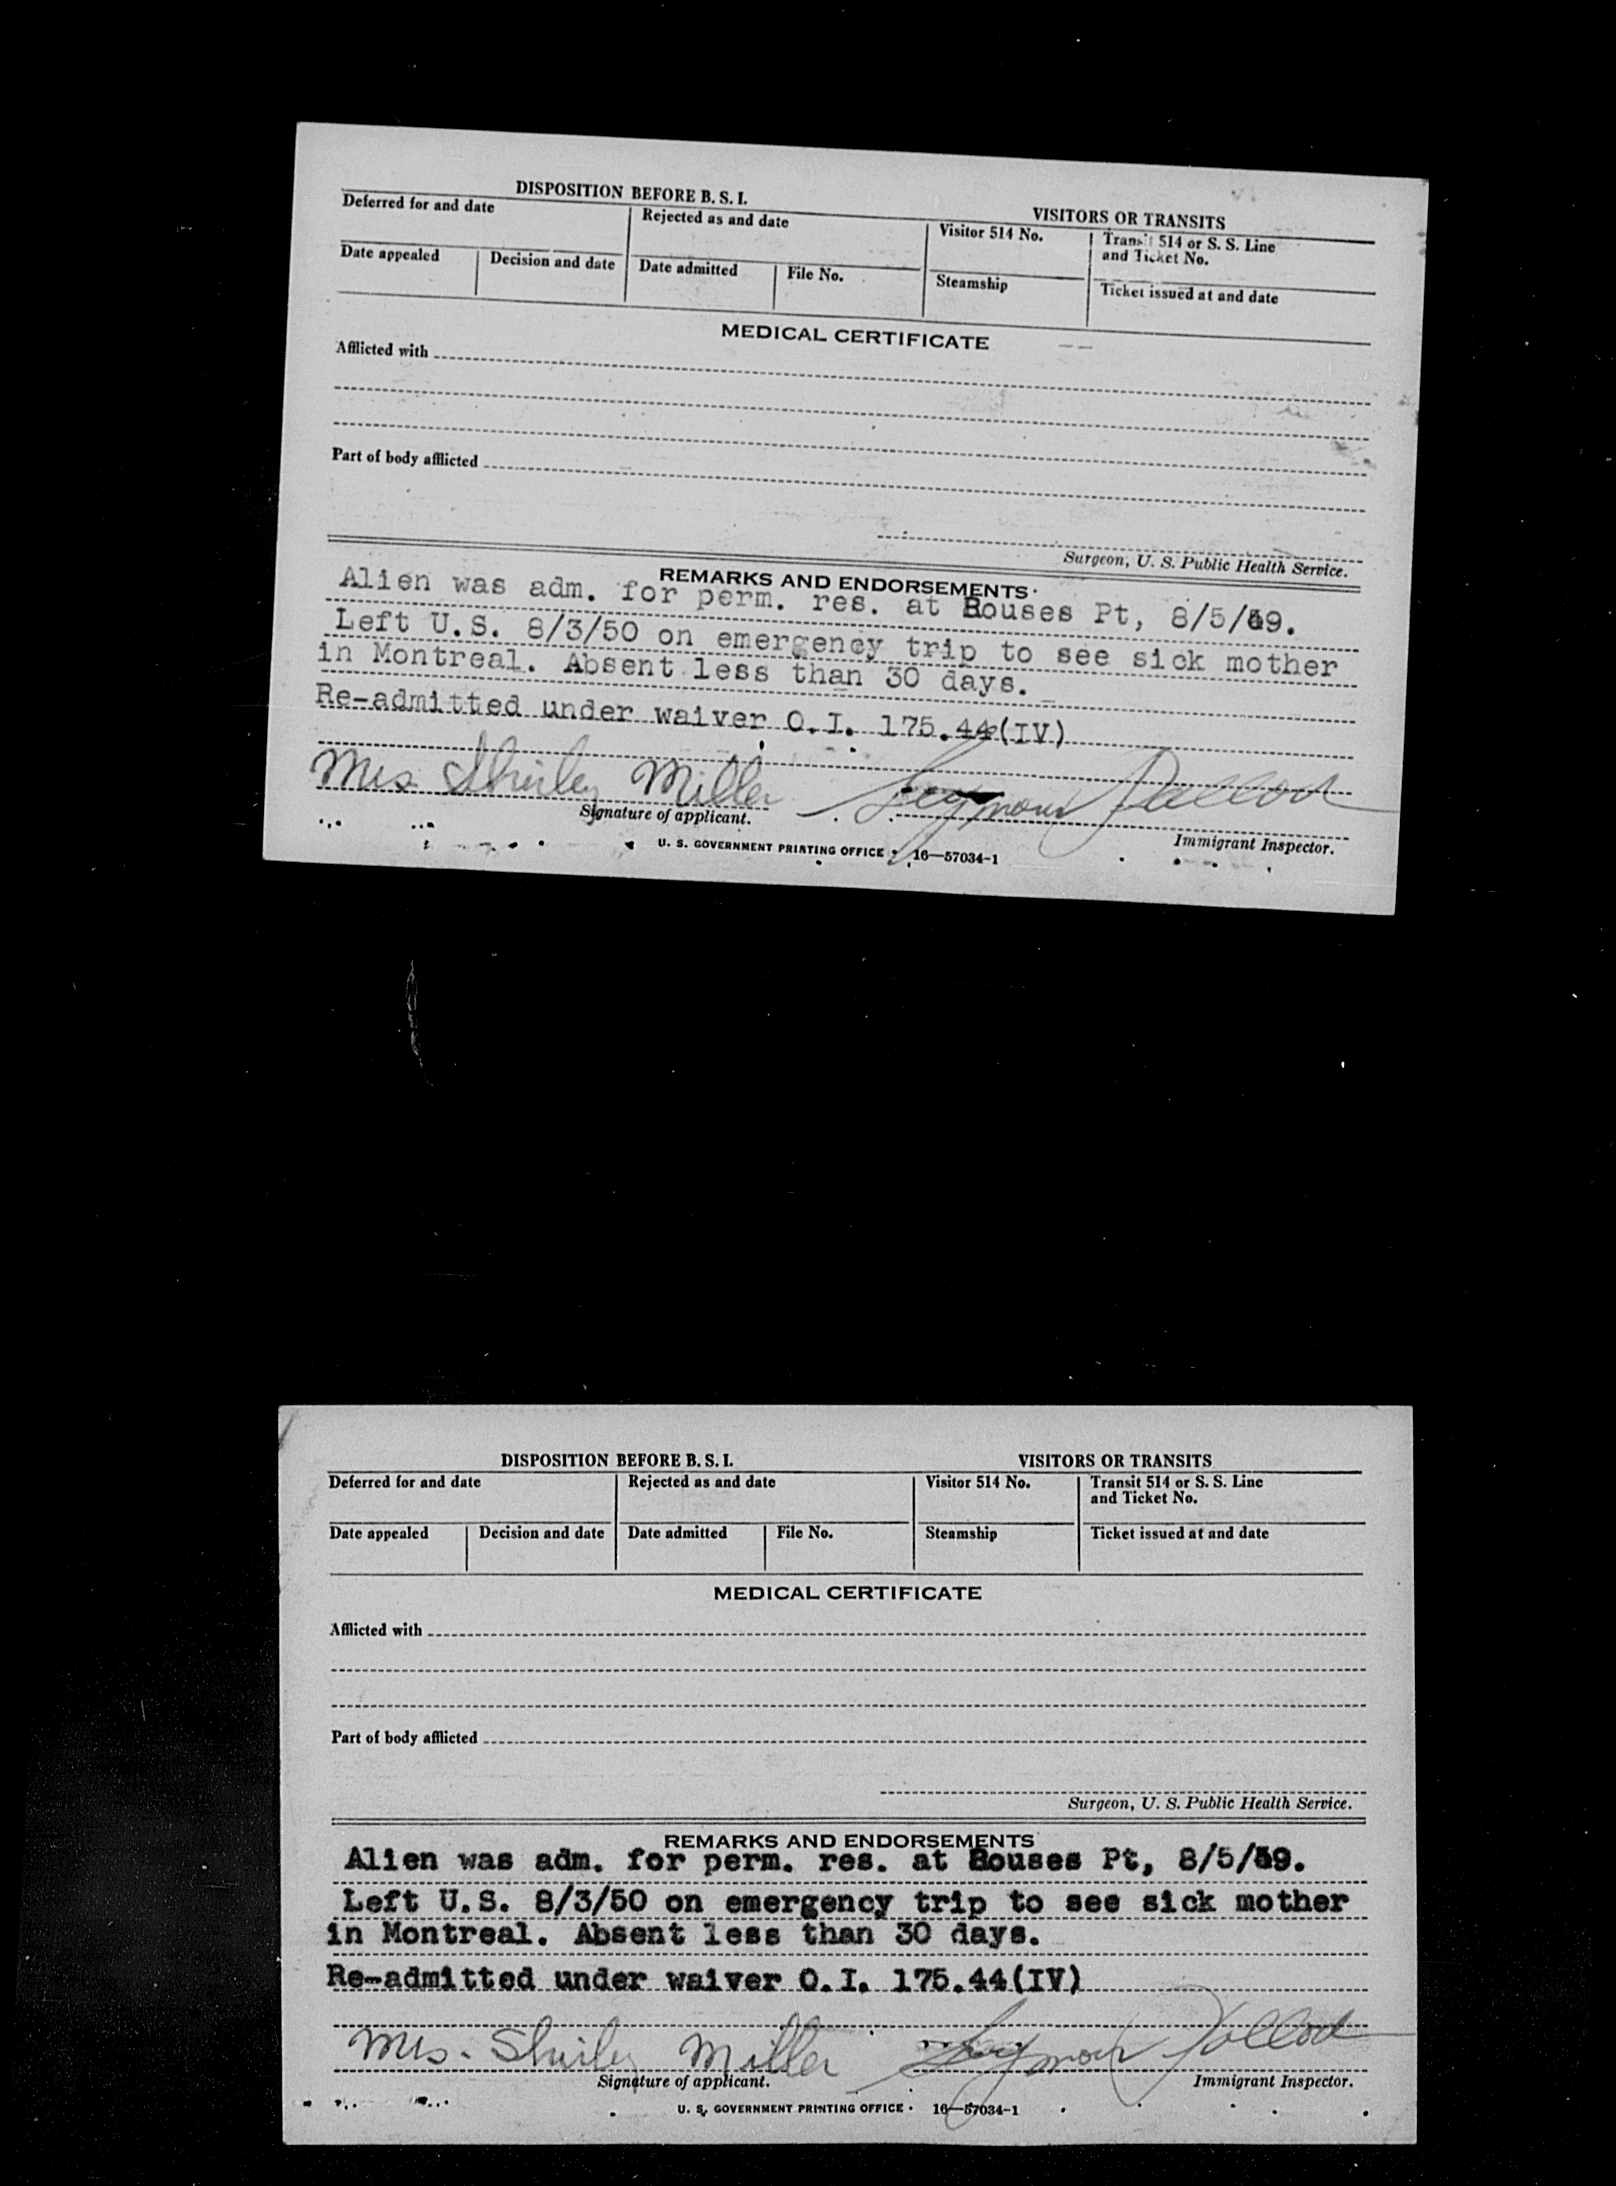 DISPOSITION BEFORE B. S. I.
VISITORS OR TRANSITS
Deferred for and date
Rejected as and date
Visitor 514 No.
Transit 514 or S. S. Line
and Ticket No.
Date appealed
Decision and date
Date admitted
File No.
Steamship
Ticket issued at and date
MEDICAL CERTIFICATE
Afflicted with
Part of body afflicted
Surgeon, U. S. Public Health Service.
REMARKS AND ENDORSEMENTS
Alien was adm. for perm. res. at Rouses Pt,
Left U.S. 8/3/50 on emergency trip to see sick mother
in Montreal. Absent less than 30 days.
Re-admitted under waiver O.I. 175.44(IV)
Mrs Shirley Miller Seymour
Signature of applicant.
Immigrant Inspector.
U. S. GOVERNMENT PRINTING OFFICE 16—57034-1
DISPOSITION BEFORE B. S. I.
VISITORS OR TRANSITS
Deferred for and date
Rejected as and date
Visitor 514 No.
Transit 514 or S. S. Line
and Ticket No.
Date appealed
Decision and date
Date admitted
File No.
Steamship
Ticket issued at and date
MEDICAL CERTIFICATE
Afflicted with
Part of body afflicted
Surgeon, U. S. Public Health Service.
REMARKS AND ENDORSEMENTS
Alien was adm. for perm. res. at Rouses Pt,
Left U.S. 8/3/50 on emergency trip to see sick mother
in Montreal. Absent less than 30 days.
Re-admitted under waiver O.I. 175.44(IV)
Mrs. Shirley Miller Seymour
Signature of applicant.
Immigrant Inspector.
U. S. GOVERNMENT PRINTING OFFICE 16—57034-1